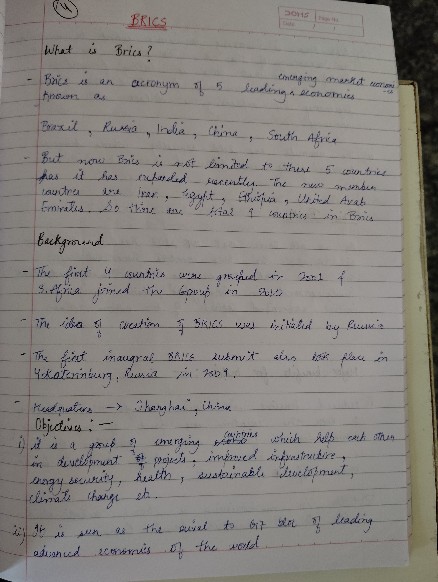 BRICS
What is Brics?
- Brics is an acronym of 5 leading economies
emerging market
known as
Brazil, Russia, India, China, South Africa
- But now Brics is not limited to these 5 countries
has it has recently. The new member
countries are Iran, Egypt, Ethiopia, United Arab
Emirates. So there are total 9 countries in Brics
Background
- The first 4 countries were grouped in 2001 &
S. Africa joined the Group in 2010
- The idea of creation of BRICS was initiated by Russia
- The first inaugral BRICS submit also took place in
Yekaterinburg, Russia in 2009.
- Headquaters → Shanghai, China
Objectives : -
i) it is a group of emerging which help each other
in development projects, improved infrastructure,
energy security, health, sustainable development,
climate change etc.
ii) It is seen as the rival to G7 bloc of leading
advanced economics of the world